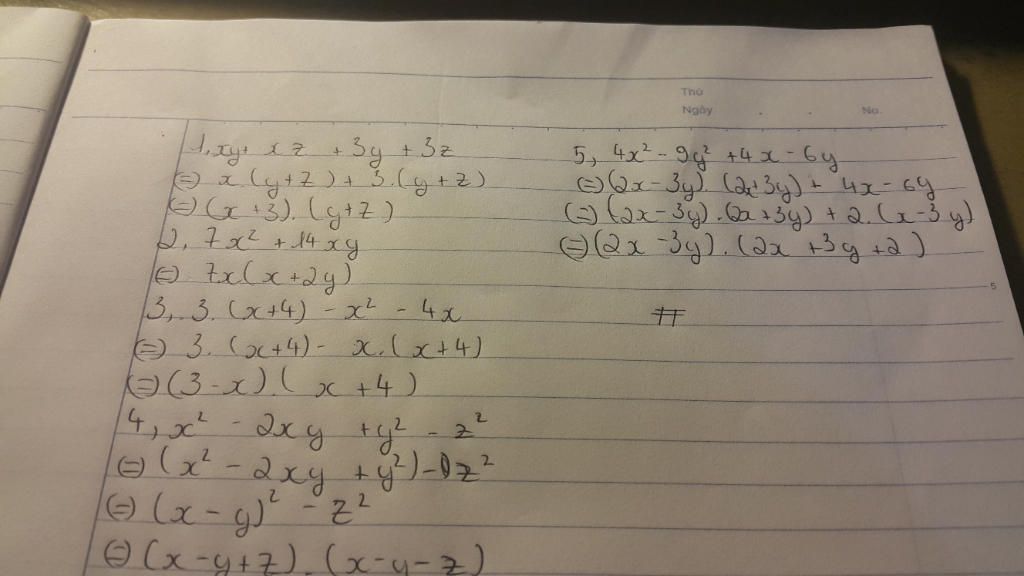 Thứ
Ngày
No.
1, xy + xz + 3y + 3z
(=) x.(y+z) + 3.(y+z)
(=) (x+3).(y+z)
2, 7x² + 14xy
(=) 7x(x+2y)
3, 3.(x+4) - x² - 4x
(=) 3.(x+4) - x.(x+4)
(=) (3-x)(x+4)
4, x² - 2xy + y² - z²
(=) (x² - 2xy + y²) - z²
(=) (x-y)² - z²
(=) (x-y+z).(x-y-z)
5, 4x² - 9y² + 4x - 6y
(=) (2x-3y).(2x+3y) + 4x - 6y
(=) (2x-3y).(2x+3y) + 2.(x-3y)
(=) (2x-3y).(2x+3y+2)
5